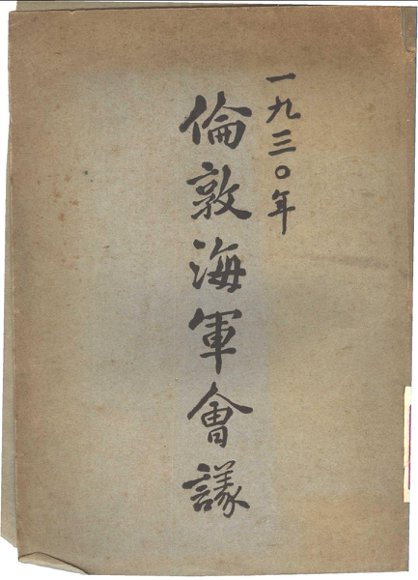 一九三〇年
倫敦海軍會議